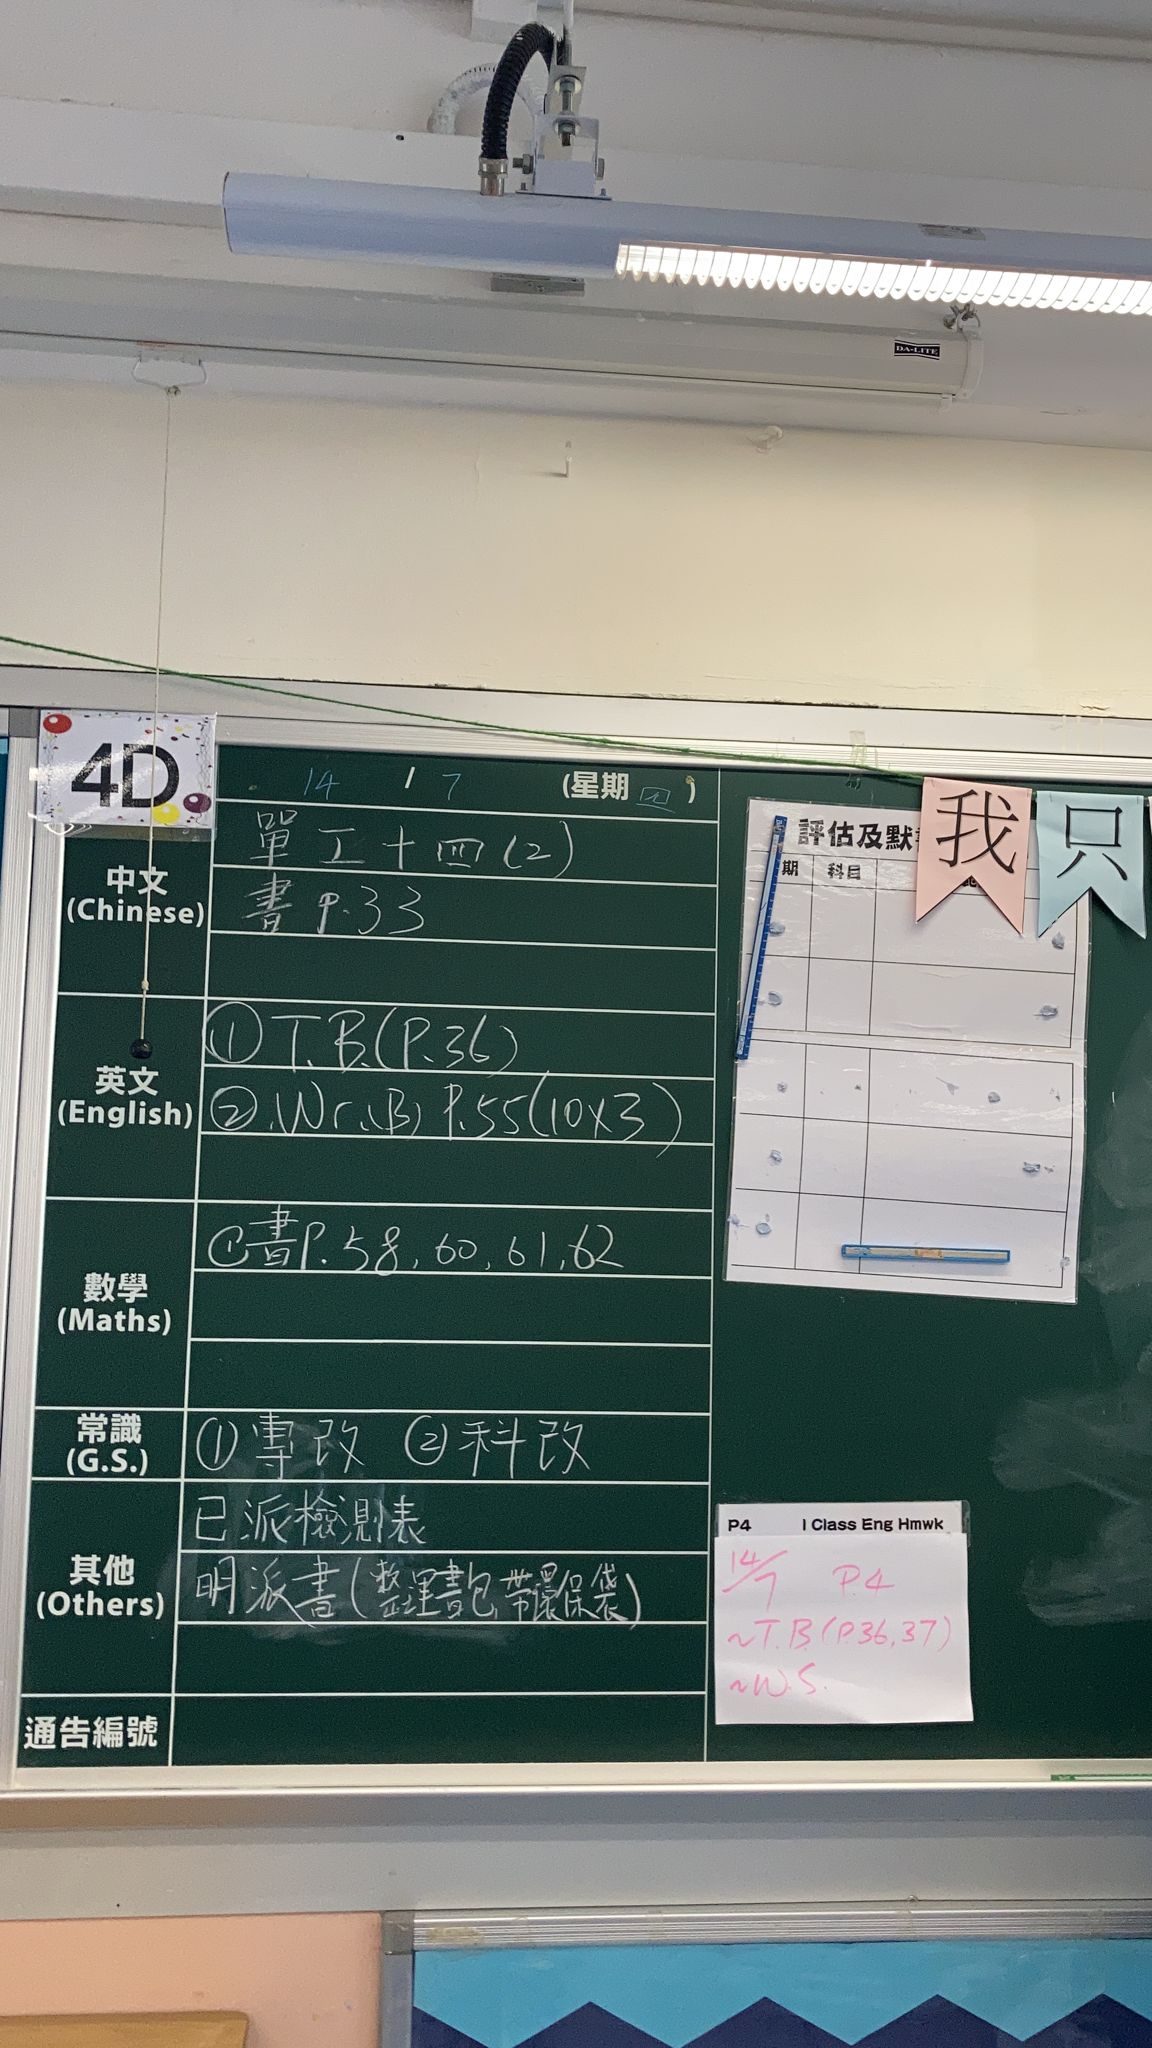 DA-LITE
4D
14 / 7 (星期 四 )
中文
(Chinese)
單工十四(2)
書 P.33
英文
(English)
① T.B.(P.36)
② Wr.(B) P.55(10x3)
數學
(Maths)
① 書P.58, 60, 61, 62
常識
(G.S.)
① 專改 ② 科改
其他
(Others)
已派檢測表
明派書(整理書包,帶環保袋)
通告編號
評估及默
期 科目
我 只
P4 I Class Eng Hmwk
14/7 P.4
~T.B.(P.36,37)
~W.S.